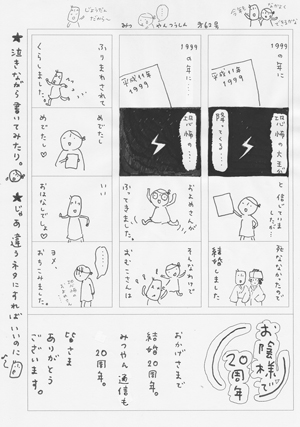 じょうだんだから〜
みつやんつうしん
第62号
1999の年に…
平成11年
1999
恐怖の大王が
降ってくる……
と信じていましたが…
死ななかったので結婚しました
お陰様で
20周年
1999の年に…
平成11年
1999
恐怖の…
およめさんがふってきました。
そんなわけでおむこさんは
ふりまわされてくらしました。
めでたし
めでたし♡
いい
おはなしでしょ♡
………
ヨメ、
おちこみました。
おかげさまで
結婚20周年。
みつやん通信も
20周年。
皆さま
ありがとう
ございます。
★泣きながら書いてみたり。
★じゃあ違うネタにすればいいのに